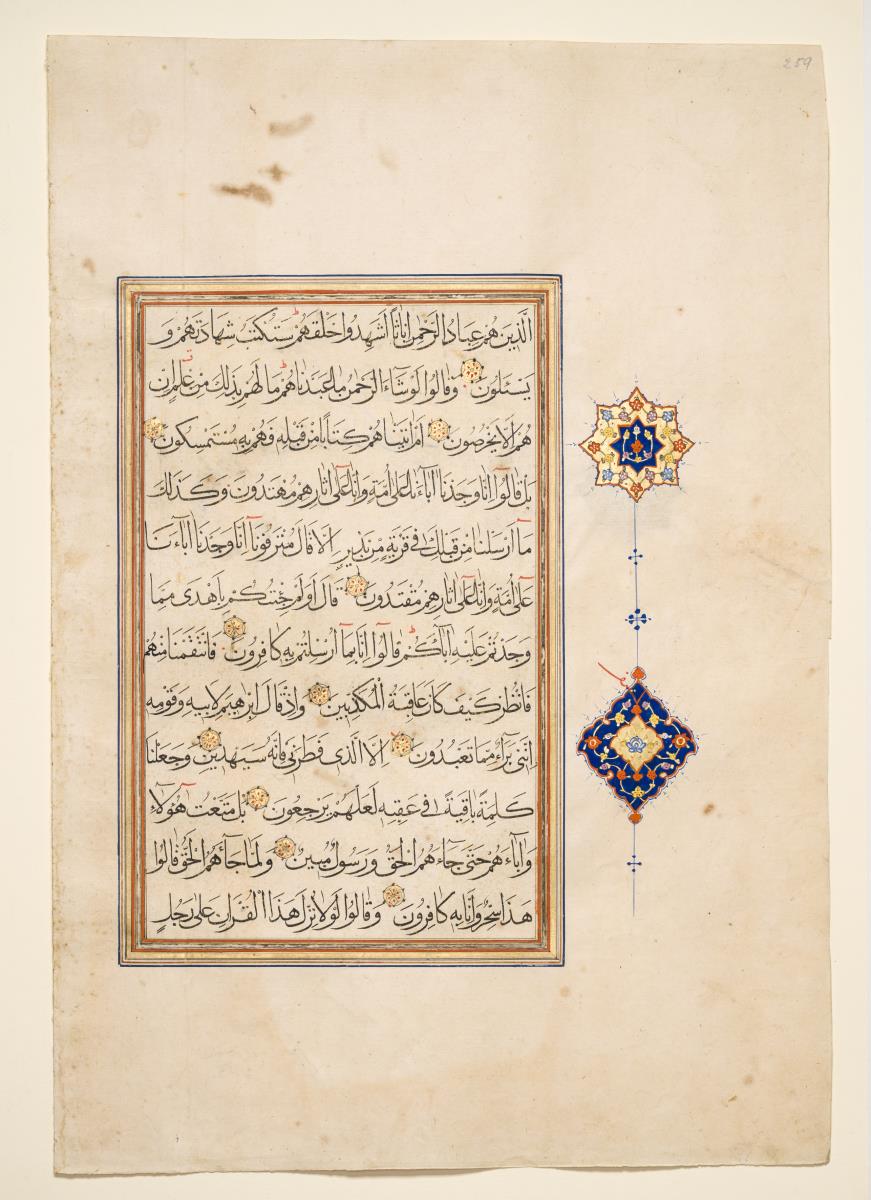 259
الَّذِينَ هُمْ عِبَادُ الرَّحْمٰنِ اِنَاثًا اَشَهِدُوا خَلْقَهُمْ سَتُكْتَبُ شَهَادَتُهُمْ وَ
يُسْئَلُونَ وَقَالُوا لَوْ شَاءَ الرَّحْمٰنُ مَا عَبَدْنَاهُمْ مَا لَهُمْ بِذٰلِكَ مِنْ عِلْمٍ اِنْ
هُمْ اِلَّا يَخْرُصُونَ اَمْ اٰتَيْنَاهُمْ كِتَابًا مِنْ قَبْلِهِ فَهُمْ بِهِ مُسْتَمْسِكُونَ
بَلْ قَالُوا اِنَّا وَجَدْنَا اٰبَاءَنَا عَلٰى اُمَّةٍ وَاِنَّا عَلٰى اٰثَارِهِمْ مُهْتَدُونَ وَكَذٰلِكَ
مَا اَرْسَلْنَا مِنْ قَبْلِكَ فِي قَرْيَةٍ مِنْ نَذِيرٍ اِلَّا قَالَ مُتْرَفُوهَا اِنَّا وَجَدْنَا اٰبَاءَنَا
عَلٰى اُمَّةٍ وَاِنَّا عَلٰى اٰثَارِهِمْ مُقْتَدُونَ قَالَ اَوَلَوْ جِئْتُكُمْ بِاَهْدٰى مِمَّا
وَجَدْتُمْ عَلَيْهِ اٰبَاءَكُمْ قَالُوا اِنَّا بِمَا اُرْسِلْتُمْ بِهِ كَافِرُونَ فَانْتَقَمْنَا مِنْهُمْ
فَانْظُرْ كَيْفَ كَانَ عَاقِبَةُ الْمُكَذِّبِينَ وَاِذْ قَالَ اِبْرٰهِيمُ لِاَبِيهِ وَقَوْمِهِ
اِنَّنِي بَرَاءٌ مِمَّا تَعْبُدُونَ اِلَّا الَّذِي فَطَرَنِي فَاِنَّهُ سَيَهْدِينِ وَجَعَلَهَا
كَلِمَةً بَاقِيَةً فِي عَقِبِهِ لَعَلَّهُمْ يَرْجِعُونَ بَلْ مَتَّعْتُ هٰؤُلَاءِ
وَاٰبَاءَهُمْ حَتّٰى جَاءَهُمُ الْحَقُّ وَرَسُولٌ مُبِينٌ وَلَمَّا جَاءَهُمُ الْحَقُّ قَالُوا
هٰذَا سِحْرٌ وَاِنَّا بِهِ كَافِرُونَ وَقَالُوا لَوْلَا نُزِّلَ هٰذَا الْقُرْاٰنُ عَلٰى رَجُلٍ